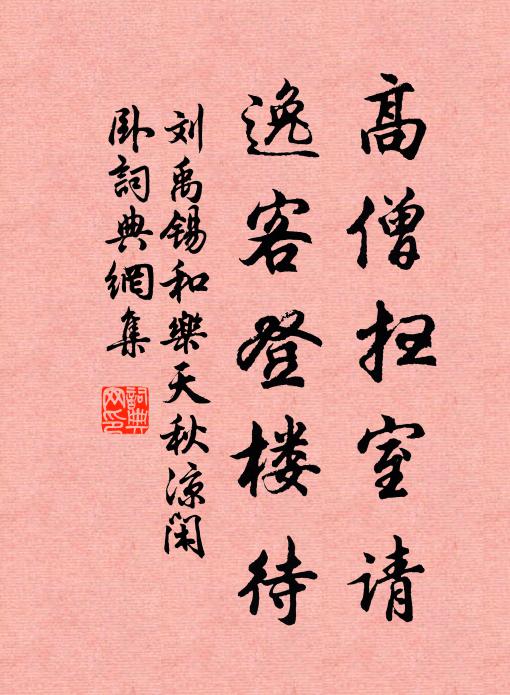 高僧扫室请
逸客登楼待
刘禹锡和乐天秋凉闲
卧词典網集
詞典网印